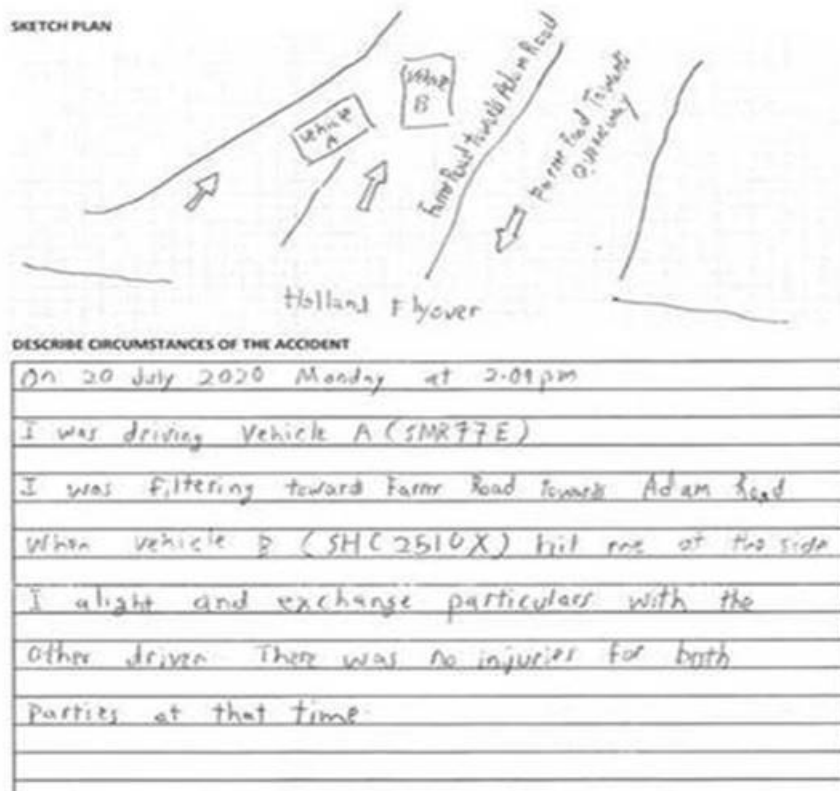 SKETCH PLAN
Vehicle
A
B
Farrer Road Towards Adam Road
Farrer Road Towards
Queensway
Holland Flyover
DESCRIBE CIRCUMSTANCES OF THE ACCIDENT
On 20 July 2020 Monday at 2.09pm
I was driving Vehicle A (SMR77E)
I was filtering toward Farrer Road towards Adam Road
When vehicle B (SHC2510X) hit me at the side
I alight and exchange particulars with the
other driver There was no injuries for both
Parties at that time